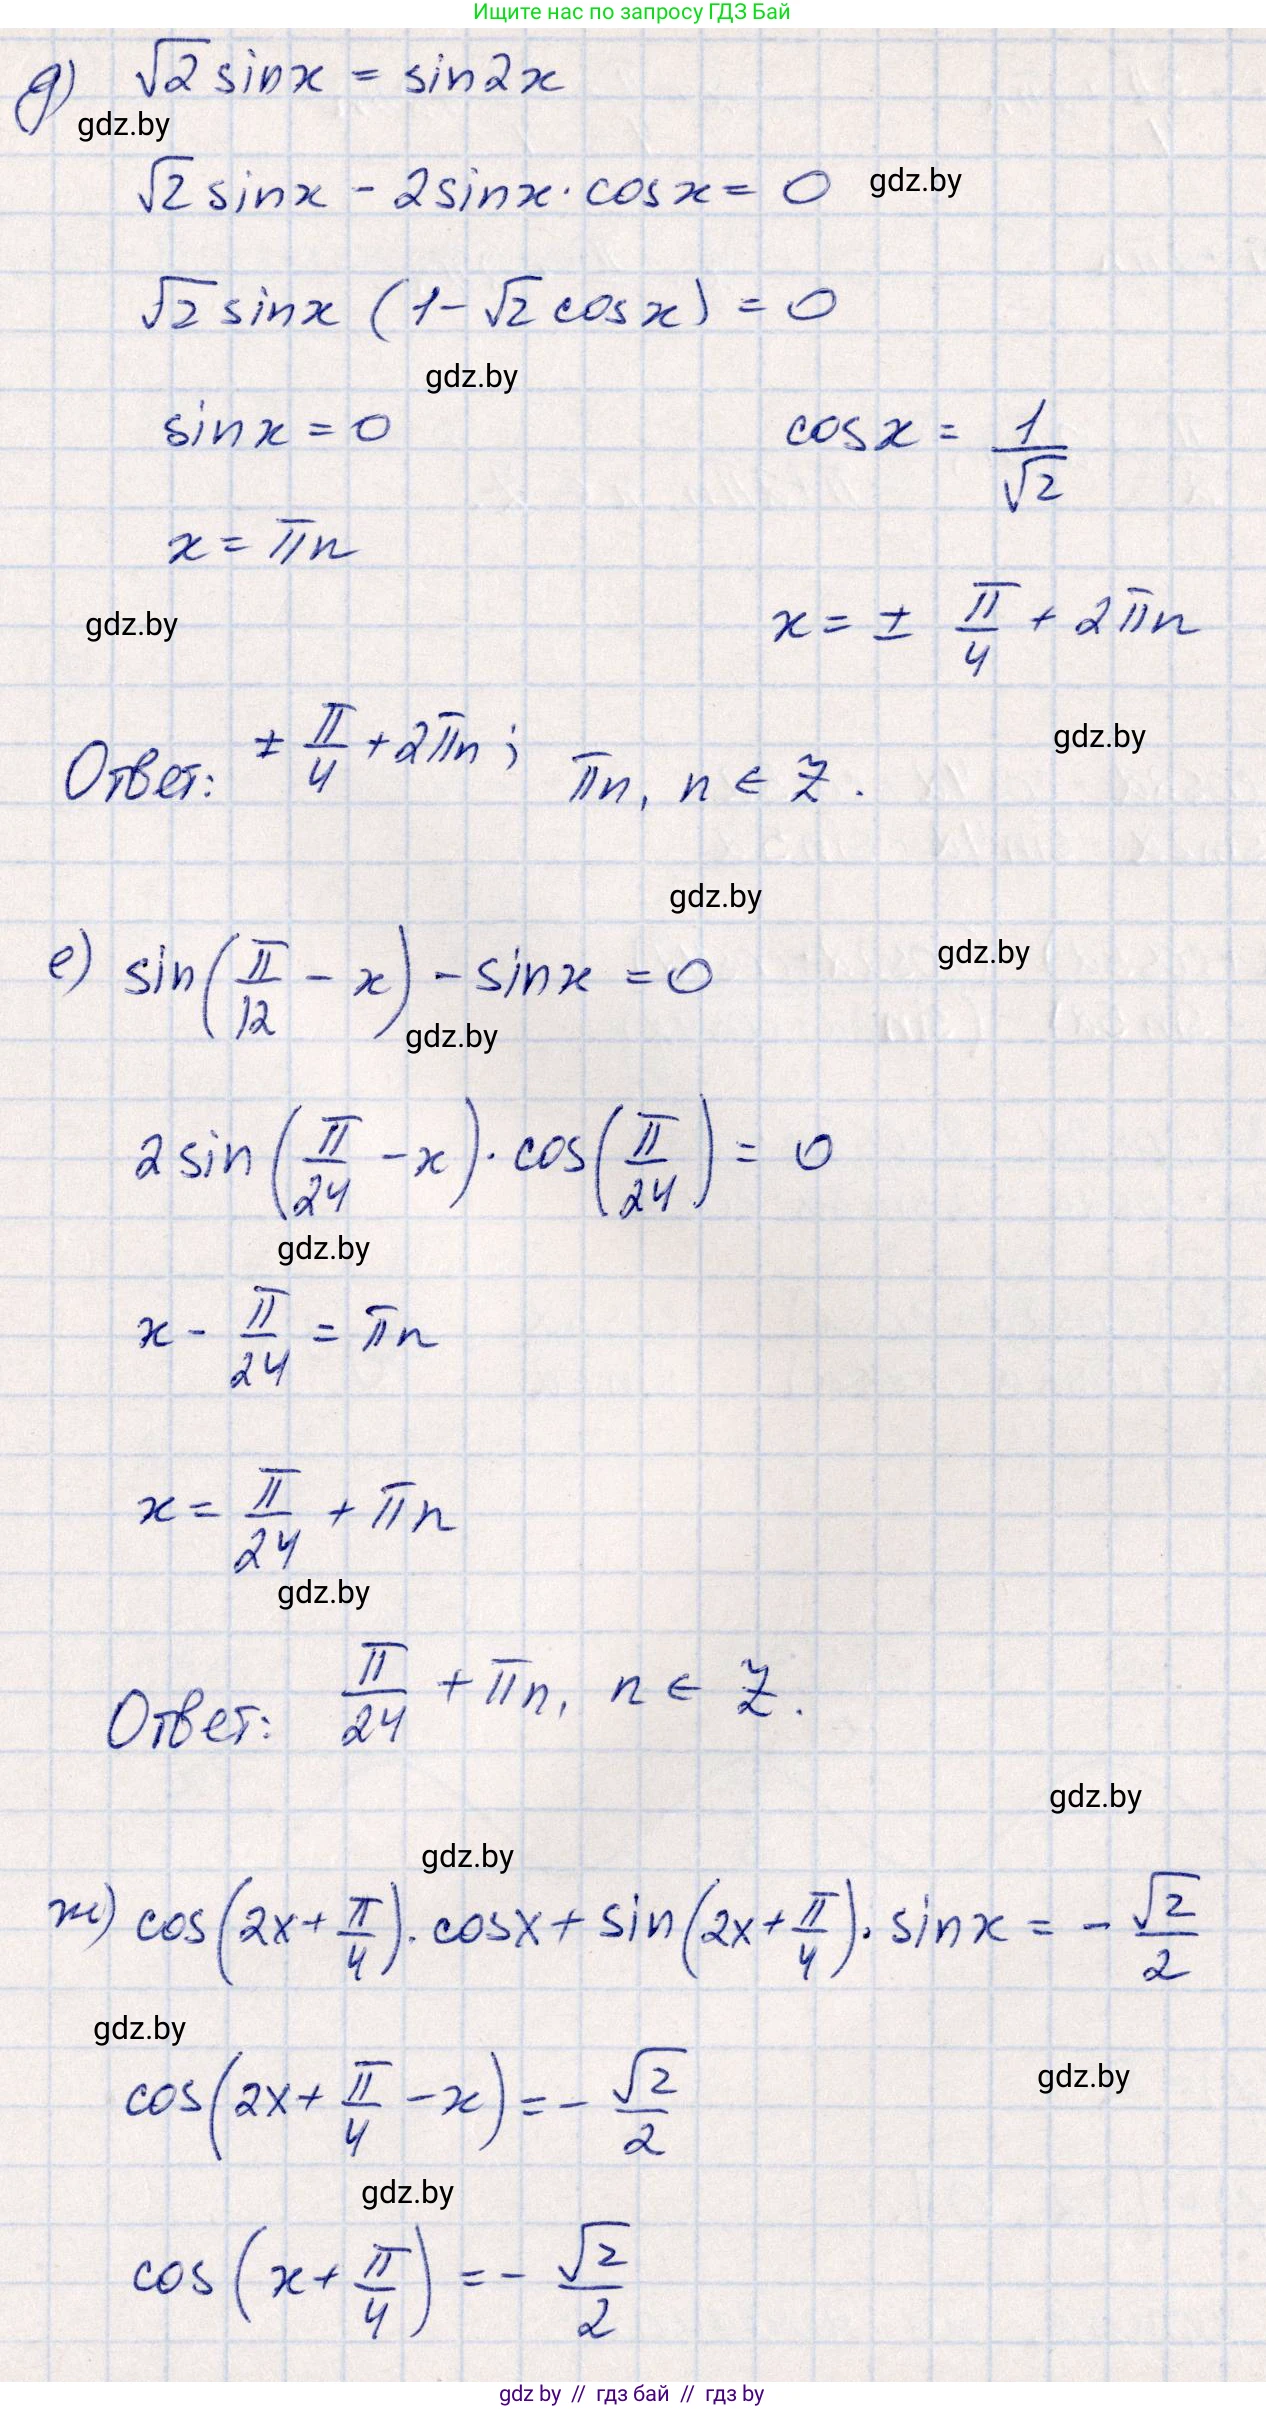 Ищите нас по запросу ГДЗ Бай
д) √2 sinx = sin2x
gdz.by
√2 sinx - 2sinx · cosx = 0 gdz.by
√2 sinx (1 - √2 cosx) = 0
gdz.by
sinx = 0 cosx = 1/√2
x = πn
gdz.by x = ± π/4 + 2πn
gdz.by
Ответ: ± π/4 + 2πn; πn, n ∈ Z.
gdz.by
gdz.by
е) sin(π/12 - x) - sinx = 0
gdz.by
2 sin(π/24 - x) · cos(π/24) = 0
gdz.by
x - π/24 = πn
x = π/24 + πn
gdz.by
Ответ: π/24 + πn, n ∈ Z.
gdz.by
gdz.by
ж) cos(2x + π/4) · cosx + sin(2x + π/4) · sinx = - √2/2
gdz.by
cos(2x + π/4 - x) = - √2/2 gdz.by
gdz.by
cos(x + π/4) = - √2/2
gdz by // гдз бай // гдз by